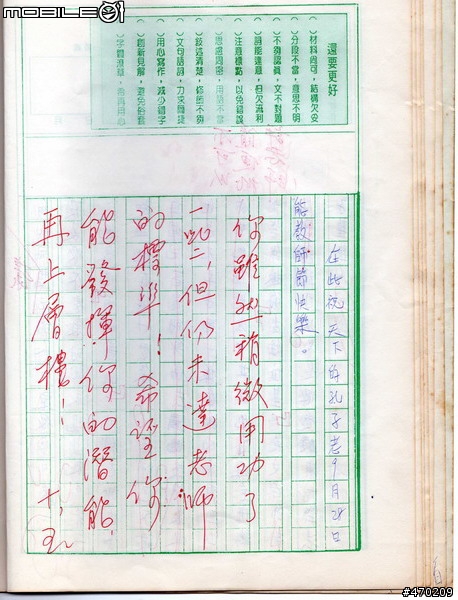 MOBILE01
還要更好
( )材料尚可，結構欠妥
( )分段不當，意思不明
( )不夠認真，文不對題
( )詞能達意，但欠流利
( )注意標點，以免錯誤
( )思慮周密，用語不當
( )敘述清楚，佈局不夠
( )文句語詞，力求簡捷
( )用心寫作，減少錯字
( )創新見解，避免俗套
( )字體潦草，用心
在此祝天下的孔子老9月28日
能教師節快樂。
你雖然稍微用功了
一點，但仍未達老師
的標準！希望你
能發揮你的潛能，
再上層樓！ 十、五
#470209